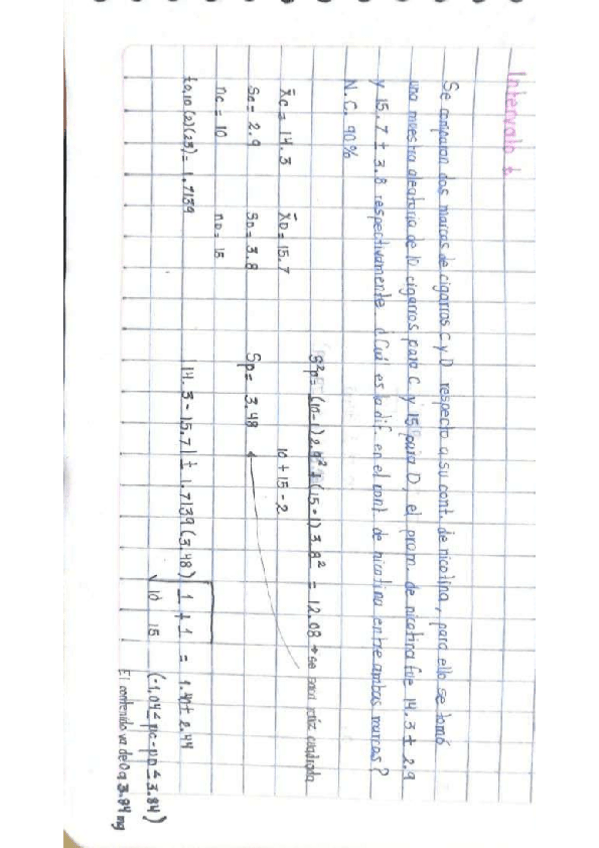 Intervalo t
Se comparan dos marcas de cigarros C y D respecto a su cont. de nicotina, para ello se tomó
una muestra aleatoria de 10 cigarros para C y 15 para D, el prom. de nicotina fue 14.3 ± 2.9
y 15.7 ± 3.8 respectivamente. ¿Cuál es la dif. en el cont de nicotina entre ambas marcas?
N.C. 90%
X̄C = 14.3 X̄D = 15.7
Sc = 2.9 SD = 3.8
nc = 10 nD = 15
t0.10(2)(23) = 1.7139
S²p = (10-1)2.9² + (15-1)3.8² = 12.08 → se saca raíz cuadrada
10+15-2
Sp = 3.48
|14.3 - 15.7| ± 1.7139(3.48)√1 + 1 = 1.4 ± 2.44
10 15
(-1.04 ≤ μc-μD ≤ 3.84)
El contenido va de 0 a 3.84 mg